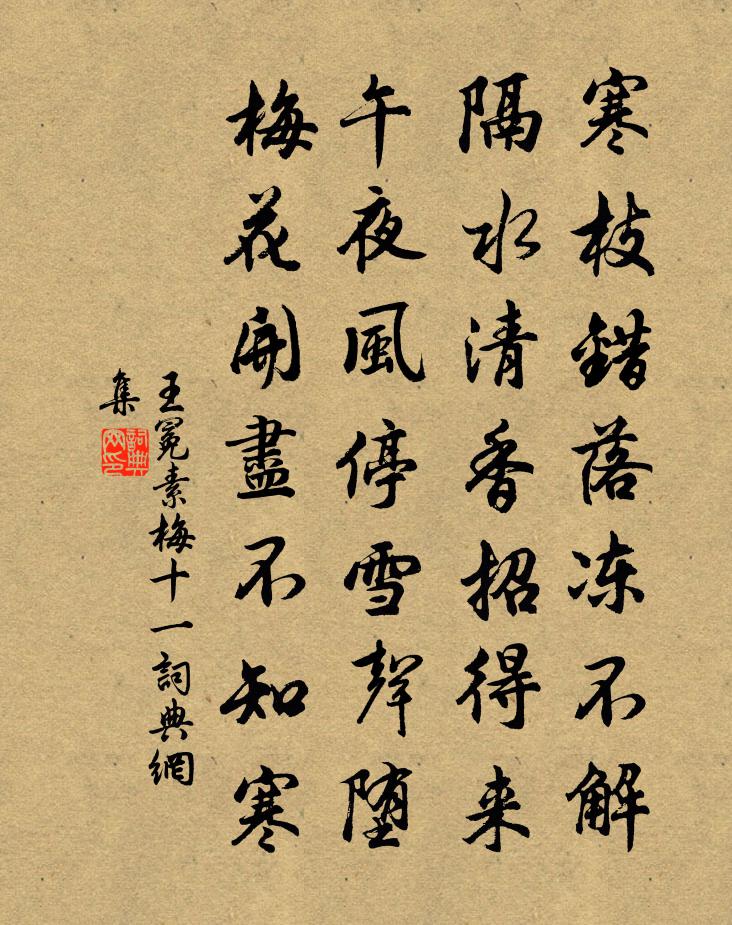 寒枝錯落冻不解
隔水清香招得来
午夜風停雪聲堕
梅花開盡不知寒
王冕素梅十一詞典網
集
詞典
网印